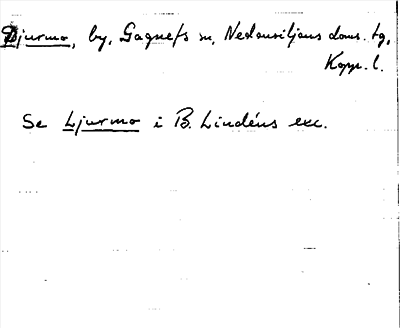 Djurmo, by, Gagnefs sn, Nedansiljans doms. tg,
Kopp. l.
Se Ljurmo i B. Lindéns exc.